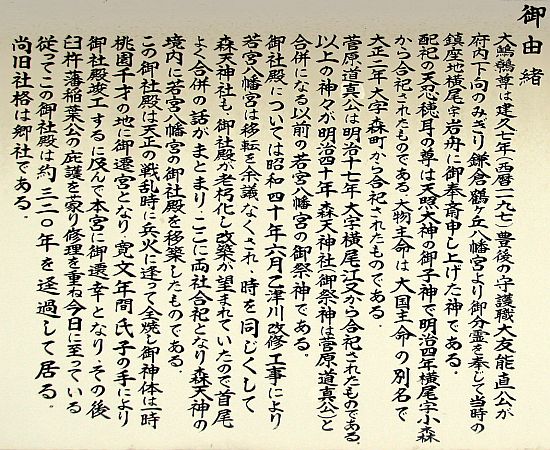 御由緒
大鷦鷯尊は建久七年(西暦一一九七)豊後の守護職大友能直公が
府内下向のみぎり鎌倉鶴ヶ丘八幡宮より御分霊を奉じて当時の
鎮座地横尾字岩舟に御奉斎申し上げた神である。
配祀の天忍穂耳の尊は天照大神の御子神で明治四年横尾字小森
から合祀されたものである大物主命は大国主命の別名で
大正二年大字森町から合祀されたものである。
菅原道真公は明治十七年大字横尾江又から合祀されたものである。
以上の神々が明治四十年森天神社(御祭神は菅原道真公)と
合併になる以前の若宮八幡宮の御祭神である。
御社殿については昭和四十年六月乙津川改修工事により
若宮八幡宮は移転を余議なくされ、時を同じくして
森天神社も御社殿が老朽化し改築が望まれていたので首尾
よく合併の話がまとまり、ここに両社合祀となり森天神の
境内に若宮八幡宮の御社殿を移築したものである。
この御社殿は天正の戦乱時に兵火に逹って全焼し御神体は一時
桃園千才の地に御遷宮となり、寛文年間氏子の手により
御社殿竣工するに及んで本宮に御還幸となり、その後
臼杵藩稲葉公の庇護を蒙り修理を重ね今日に至っている
従ってこの御社殿は約三二〇年を逕過して居る。
尚旧社格は郷社である。